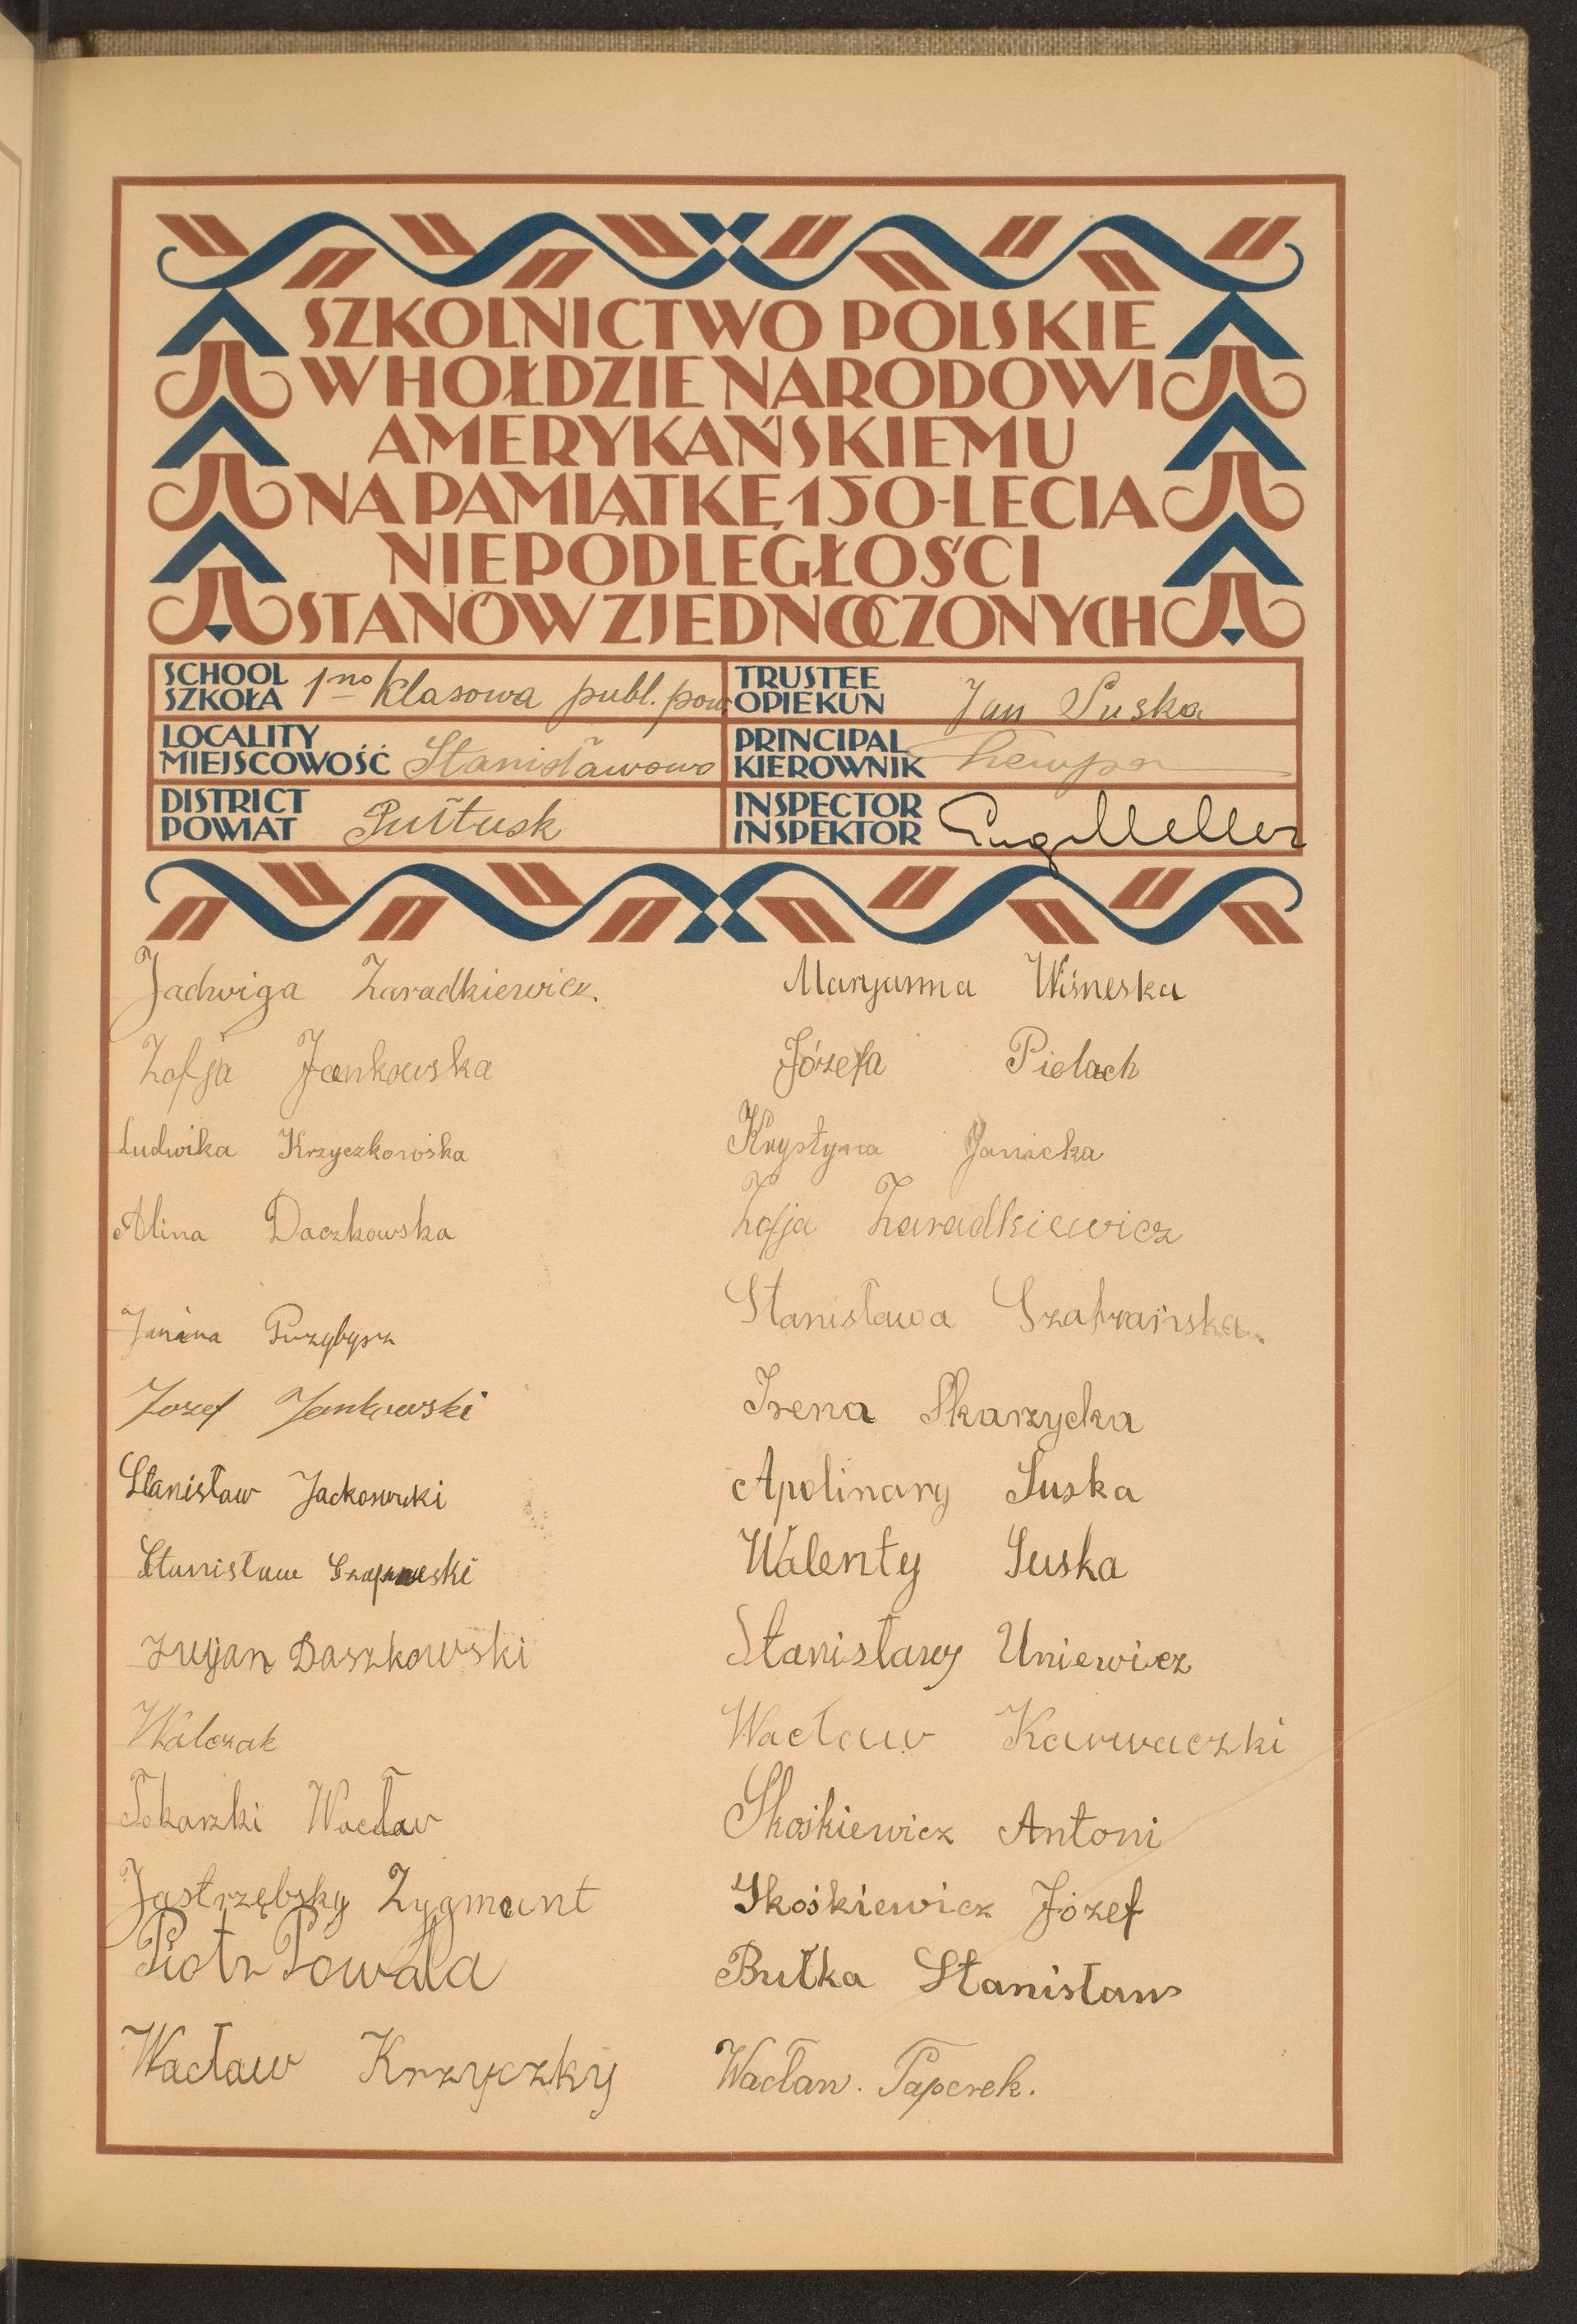 SZKOLNICTWO POLSKIE
W HOŁDZIE NARODOWI
AMERYKAŃSKIEMU
NA PAMIĄTKĘ 150-LECIA
NIEPODLEGŁOŚCI
STANÓW ZJEDNOCZONYCH
SCHOOL
SZKOŁA 1no klasowa publ. pow.
TRUSTEE
OPIEKUN Jan Suska
LOCALITY
MIEJSCOWOŚĆ Stanisławowo
PRINCIPAL
KIEROWNIK
DISTRICT
POWIAT Pułtusk
INSPECTOR
INSPEKTOR Eug Meller
Jadwiga Zaradkiewicz.
Zofja Jankowska
Ludwika Krzyczkowska
Alina Daczkowska
Janina Przybysz
Jozef Jankowski
Stanisław Jackowski
Stanisław
Lucjan Daszkowski
Walczak
Tokarzki Wacław
Jastrzębsky Zygmunt
Piotr Powała
Wacław Krzyczky
Maryanna Wiśneska
Józefa Pielach
Krystyna Janicka
Zofja Zaradkiewicz
Stanisława Szafrańska.
Irena Skarzycka
Apolinary Suska
Walenty Suska
Stanisławy Uniewicz
Wacław Karwaczki
Skośkiewicz Antoni
Skośkiewicz Józef
Bułka Stanisław
Wacław. Paperek.